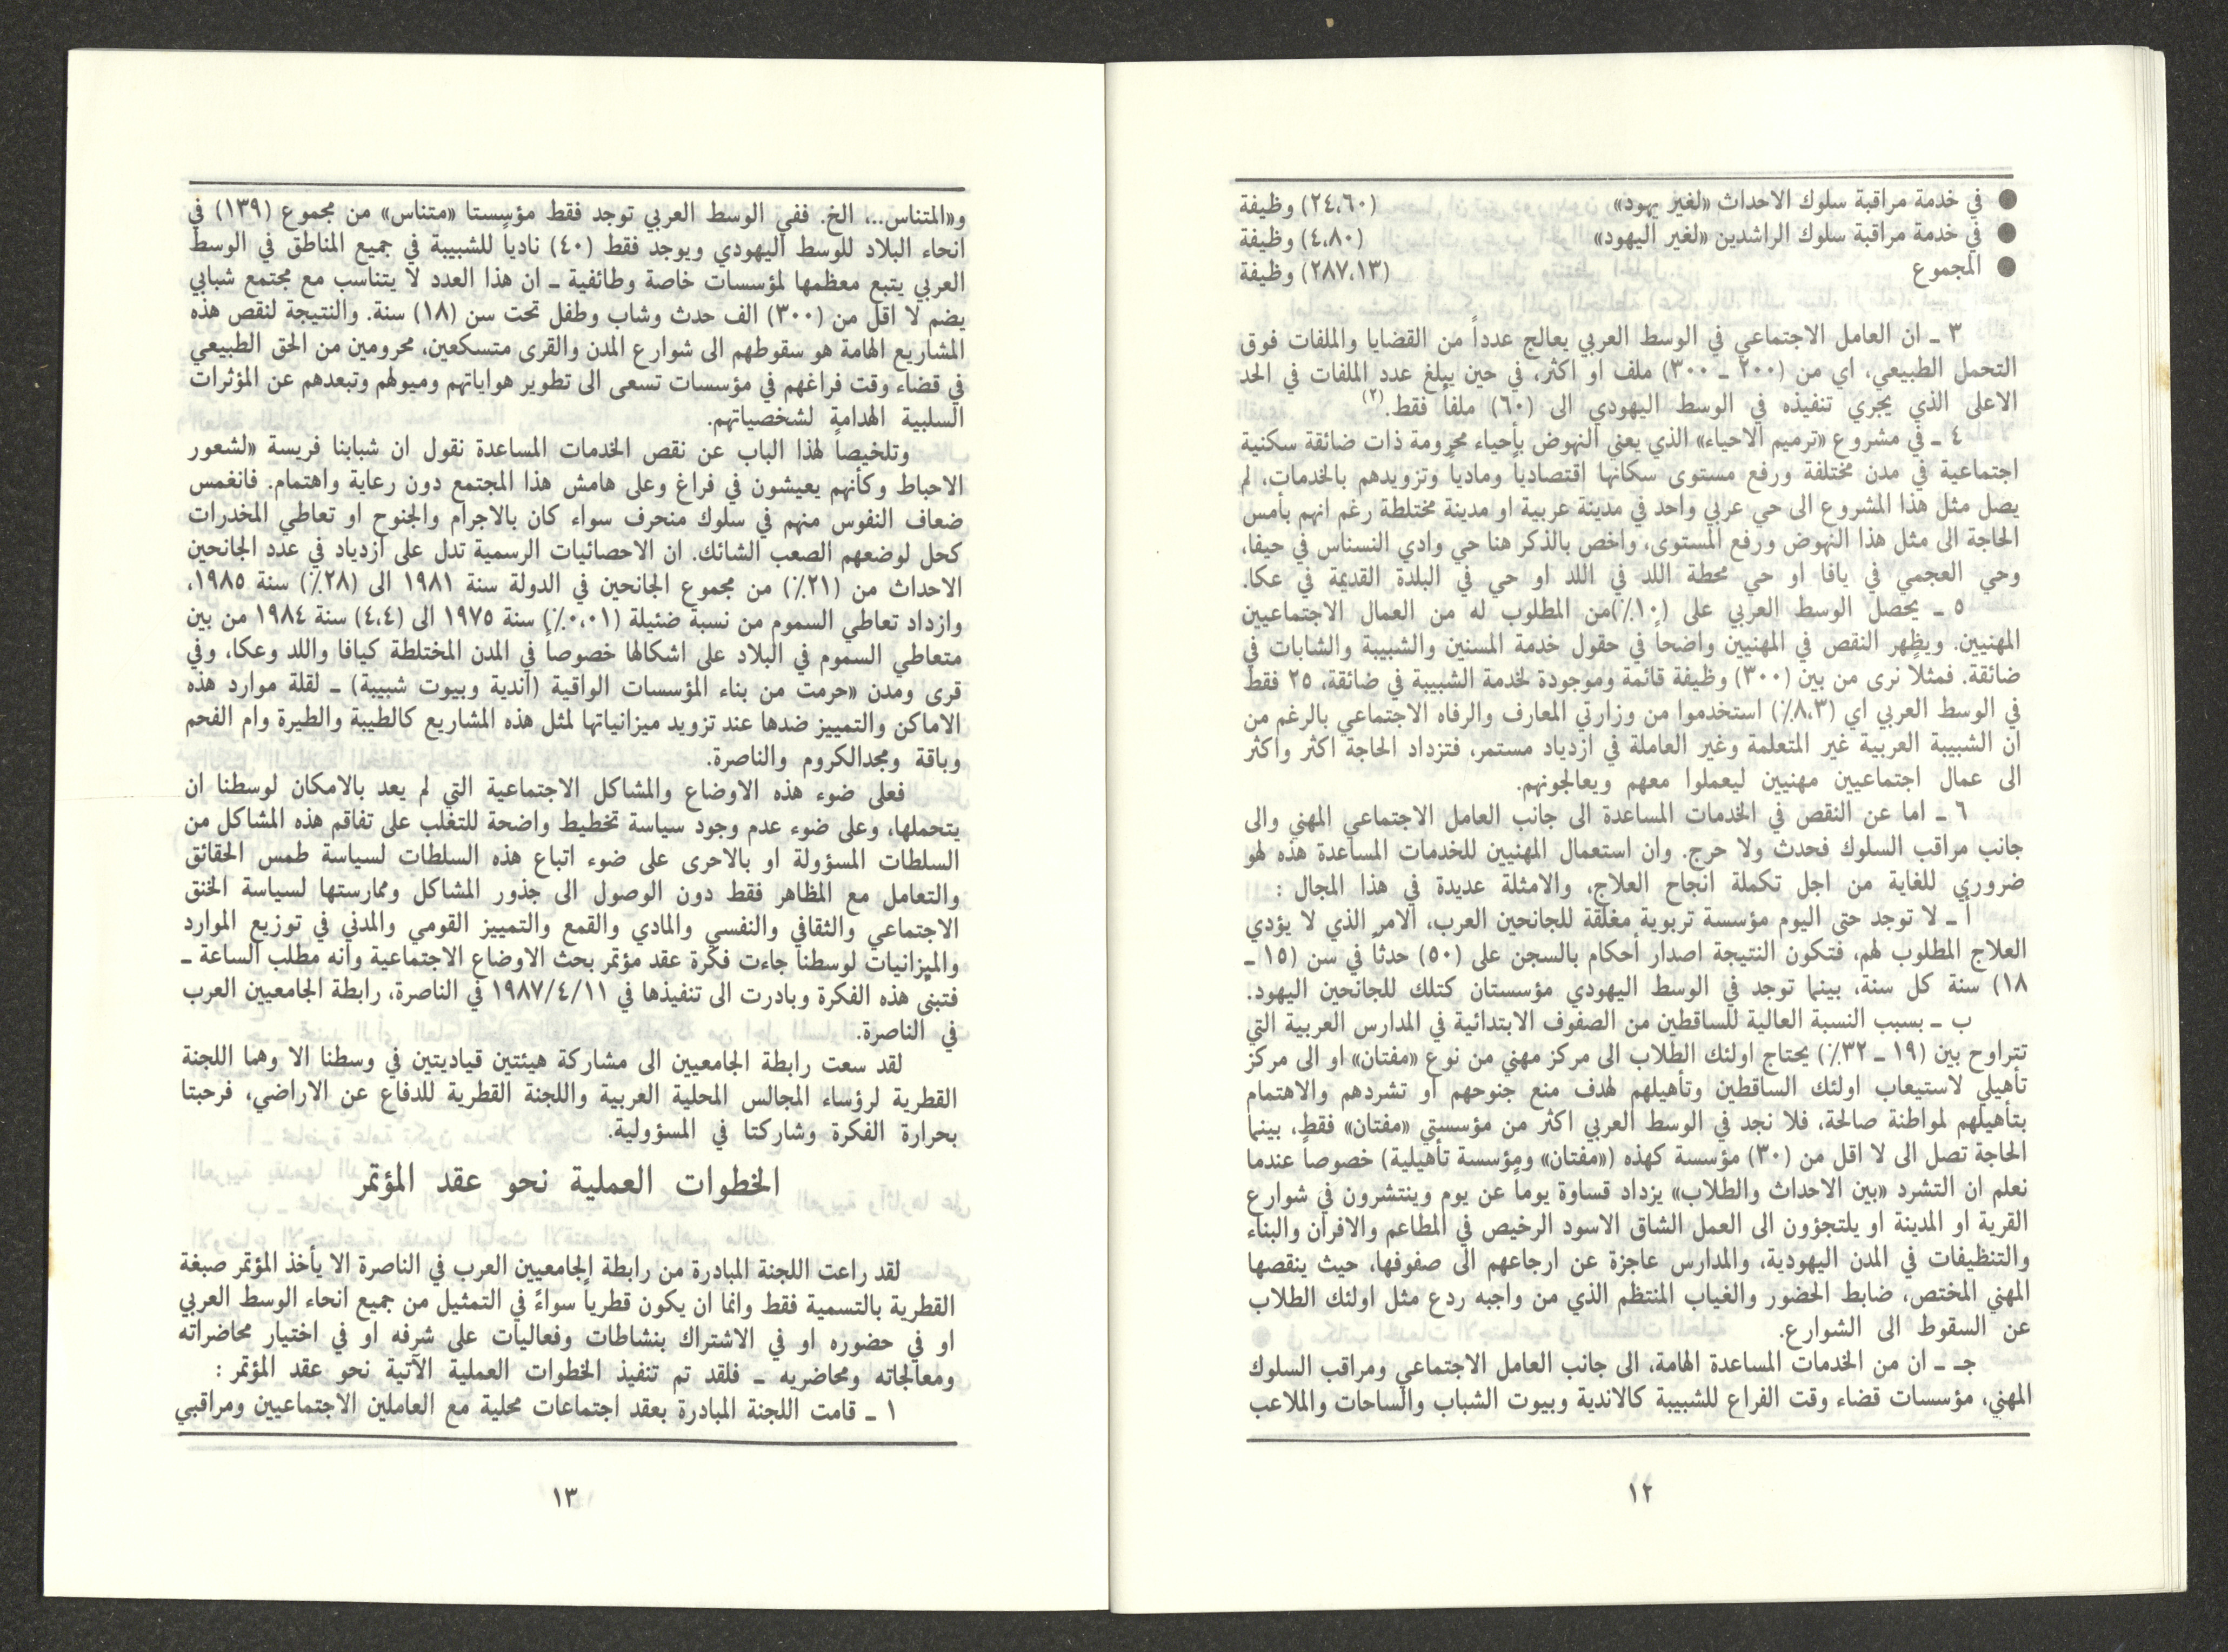 ● في خدمة مراقبة سلوك الاحداث «لغير يهود» (٢٤،٦٠) وظيفة
● في خدمة مراقبة سلوك الراشدين «لغير اليهود» (٤،٨٠) وظيفة
● المجموع (٢٨٧،١٣) وظيفة
٣ ـ ان العامل الاجتماعي في الوسط العربي يعالج عدداً من القضايا والملفات فوق
التحمل الطبيعي، اي من (٢٠٠ ـ ٣٠٠) ملف او اكثر، في حين يبلغ عدد الملفات في الحد
الاعلى الذي يجري تنفيذه في الوسط اليهودي الى (٦٠) ملفاً فقط.(٢)
٤ ـ في مشروع «ترميم الاحياء» الذي يعني النهوض بأحياء محرومة ذات ضائقة سكنية
اجتماعية في مدن مختلفة ورفع مستوى سكانها اقتصادياً ومادياً وتزويدهم بالخدمات، لم
يصل مثل هذا المشروع الى حي عربي واحد في مدينة عربية او مدينة مختلطة رغم انهم بأمس
الحاجة الى مثل هذا النهوض ورفع المستوى، واخص بالذكر هنا حي وادي النسناس في حيفا،
وحي العجمي في يافا او حي محطة اللد في اللد او حي في البلدة القديمة في عكا.
٥ ـ يحصل الوسط العربي على (١٠٪)من المطلوب له من العمال الاجتماعيين
المهنيين. ويظهر النقص في المهنيين واضحاً في حقول خدمة المسنين والشبيبة والشابات في
ضائقة. فمثلاً نرى من بين (٣٠٠) وظيفة قائمة وموجودة لخدمة الشبيبة في ضائقة، ٢٥ فقط
في الوسط العربي اي (٨،٣٪) استخدموا من وزارتي المعارف والرفاه الاجتماعي بالرغم من
ان الشبيبة العربية غير المتعلمة وغير العاملة في ازدياد مستمر، فتزداد الحاجة اكثر واكثر
الى عمال اجتماعيين مهنيين ليعملوا معهم ويعالجونهم.
٦ ـ اما عن النقص في الخدمات المساعدة الى جانب العامل الاجتماعي المهني والى
جانب مراقب السلوك فحدث ولا حرج. وان استعمال المهنيين للخدمات المساعدة هذه لهو
ضروري للغاية من اجل تكملة انجاح العلاج، والامثلة عديدة في هذا المجال :
أ ـ لا توجد حتى اليوم مؤسسة تربوية مغلقة للجانحين العرب، الامر الذي لا يؤدي
العلاج المطلوب لهم، فتكون النتيجة اصدار أحكام بالسجن على (٥٠) حدثاً في سن (١٥ ـ
١٨) سنة كل سنة، بينما توجد في الوسط اليهودي مؤسستان كتلك للجانحين اليهود.
ب ـ بسبب النسبة العالية للساقطين من الصفوف الابتدائية في المدارس العربية التي
تتراوح بين (١٩ ـ ٣٢٪) يحتاج اولئك الطلاب الى مركز مهني من نوع «مفتان» او الى مركز
تأهيلي لاستيعاب اولئك الساقطين وتأهيلهم لهدف منع جنوحهم او تشردهم والاهتمام
بتأهيلهم لمواطنة صالحة، فلا نجد في الوسط العربي اكثر من مؤسستي «مفتان» فقط، بينما
الحاجة تصل الى لا اقل من (٣٠) مؤسسة كهذه («مفتان» ومؤسسة تأهيلية) خصوصاً عندما
نعلم ان التشرد «بين الاحداث والطلاب» يزداد قساوة يوماً عن يوم وينتشرون في شوارع
القرية او المدينة او يلتجؤون الى العمل الشاق الاسود الرخيص في المطاعم والافران والبناء
والتنظيفات في المدن اليهودية، والمدارس عاجزة عن ارجاعهم الى صفوفها، حيث ينقصها
المهني المختص، ضابط الحضور والغياب المنتظم الذي من واجبه ردع مثل اولئك الطلاب
عن السقوط الى الشوارع.
جـ ـ ان من الخدمات المساعدة الهامة، الى جانب العامل الاجتماعي ومراقب السلوك
المهني، مؤسسات قضاء وقت الفراغ للشبيبة كالاندية وبيوت الشباب والساحات والملاعب
١٢
و«المتناس..، الخ. ففي الوسط العربي توجد فقط مؤسستا «متناس» من مجموع (١٣٩) في
انحاء البلاد للوسط اليهودي ويوجد فقط (٤٠) نادياً للشبيبة في جميع المناطق في الوسط
العربي يتبع معظمها لمؤسسات خاصة وطائفية ـ ان هذا العدد لا يتناسب مع مجتمع شبابي
يضم لا اقل من (٣٠٠) الف حدث وشاب وطفل تحت سن (١٨) سنة. والنتيجة لنقص هذه
المشاريع الهامة هو سقوطهم الى شوارع المدن والقرى متسكعين، محرومين من الحق الطبيعي
في قضاء وقت فراغهم في مؤسسات تسعى الى تطوير هواياتهم وميولهم وتبعدهم عن المؤثرات
السلبية الهدامة لشخصياتهم.
وتلخيصاً لهذا الباب عن نقص الخدمات المساعدة نقول ان شبابنا فريسة «لشعور
الاحباط وكأنهم يعيشون في فراغ وعلى هامش هذا المجتمع دون رعاية واهتمام. فانغمس
ضعاف النفوس منهم في سلوك منحرف سواء كان بالاجرام والجنوح او تعاطي المخدرات
كحل لوضعهم الصعب الشائك. ان الاحصائيات الرسمية تدل على ازدياد في عدد الجانحين
الاحداث من (٢١٪) من مجموع الجانحين في الدولة سنة ١٩٨١ الى (٢٨٪) سنة ١٩٨٥،
وازداد تعاطي السموم من نسبة ضئيلة (٠،٠١٪) سنة ١٩٧٥ الى (٤،٤) سنة ١٩٨٤ من بين
متعاطي السموم في البلاد على اشكالها خصوصاً في المدن المختلطة كيافا واللد وعكا، وفي
قرى ومدن «حرمت من بناء المؤسسات الواقية (أندية وبيوت شبيبة) ـ لقلة موارد هذه
الاماكن والتمييز ضدها عند تزويد ميزانياتها لمثل هذه المشاريع كالطيبة والطيرة وام الفحم
وباقة ومجدالكروم والناصرة.
فعلى ضوء هذه الاوضاع والمشاكل الاجتماعية التي لم يعد بالامكان لوسطنا ان
يتحملها، وعلى ضوء عدم وجود سياسة تخطيط واضحة للتغلب على تفاقم هذه المشاكل من
السلطات المسؤولة او بالاحرى على ضوء اتباع هذه السلطات لسياسة طمس الحقائق
والتعامل مع المظاهر فقط دون الوصول الى جذور المشاكل وممارستها لسياسة الخنق
الاجتماعي والثقافي والنفسي والمادي والقمع والتمييز القومي والمدني في توزيع الموارد
والميزانيات لوسطنا جاءت فكرة عقد مؤتمر بحث الاوضاع الاجتماعية وأنه مطلب الساعة ـ
فتبنى هذه الفكرة وبادرت الى تنفيذها في ١٩٨٧/٤/١١ في الناصرة، رابطة الجامعيين العرب
في الناصرة.
لقد سعت رابطة الجامعيين الى مشاركة هيئتين قياديتين في وسطنا الا وهما اللجنة
القطرية لرؤساء المجالس المحلية العربية واللجنة القطرية للدفاع عن الاراضي، فرحبتا
بحرارة الفكرة وشاركتا في المسؤولية.
الخطوات العملية نحو عقد المؤتمر
لقد راعت اللجنة المبادرة من رابطة الجامعيين العرب في الناصرة الا يأخذ المؤتمر صبغة
القطرية بالتسمية فقط وانما ان يكون قطرياً سواءً في التمثيل من جميع انحاء الوسط العربي
او في حضوره او في الاشتراك بنشاطات وفعاليات على شرفه او في اختيار محاضراته
ومعالجاته ومحاضريه ـ فلقد تم تنفيذ الخطوات العملية الآتية نحو عقد المؤتمر :
١ ـ قامت اللجنة المبادرة بعقد اجتماعات محلية مع العاملين الاجتماعيين ومراقبي
١٣